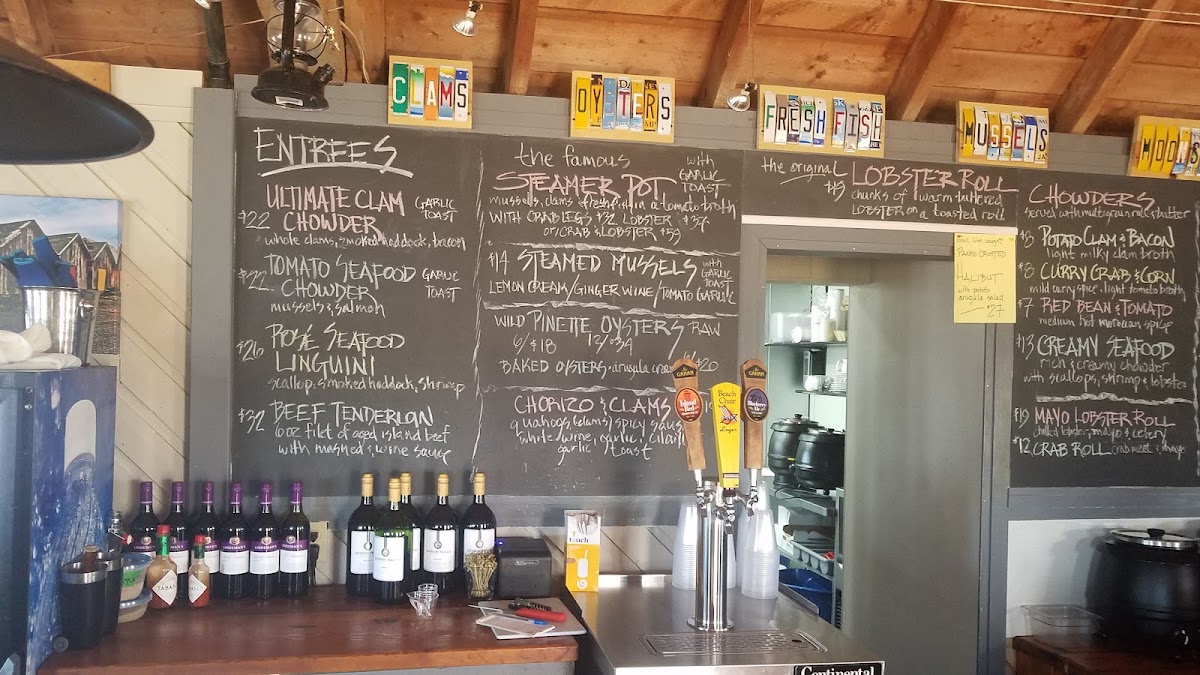 CLAMS
OYSTERS
FRESH FISH
MUSSELS
ENTREES
ULTIMATE CLAM
CHOWDER
GARLIC
TOAST
$22
whole clams, smoked haddock, bacon
$22
TOMATO SEAFOOD
CHOWDER
GARLIC
TOAST
mussels & salmon
$26
ROSÉ SEAFOOD
LINGUINI
scallop, smoked haddock, shrimp
$32 BEEF TENDERLOIN
6oz filet of aged island beef
with mashed & wine sauce
the famous
STEAMER POT
with
GARLIC
TOAST
mussels, clams fresh fish in a tomato broth
WITH CRAB LEGS $32 LOBSTER $37
or CRAB & LOBSTER $59
$14 STEAMED MUSSELS
with
GARLIC
TOAST
LEMON CREAM/GINGER WINE/TOMATO GARLIC
WILD PINETTE OYSTERS RAW
6/$18 12/$34
BAKED OYSTERS arugula 6/$20
CHORIZO & CLAMS
9 quahogs (clams) spicy
white wine, garlic,
garlic toast
the original LOBSTER ROLL
$19 chunks of warm buttered
LOBSTER on a toasted roll
CHOWDERS
served with multigrain roll & butter
POTATO CLAM & BACON
light milky clam broth
$8 CURRY CRAB & CORN
mild curry spice, light tomato broth
$7 RED BEAN & TOMATO
medium hot moroccan spice
$13 CREAMY SEAFOOD
rich & creamy chowder
with scallops, shrimp & lobster
$19 MAYO LOBSTER ROLL
chilled lobster, mayo & celery
$12 CRAB ROLL crab meat &
PANKO CRUSTED
HALIBUT
with potato
arugula salad
$27
GAHAN
Island
Red
Beach
Chair
Lager
GAHAN
Blueberry
Ale
LINDEMAN'S
TABASCO
Continental